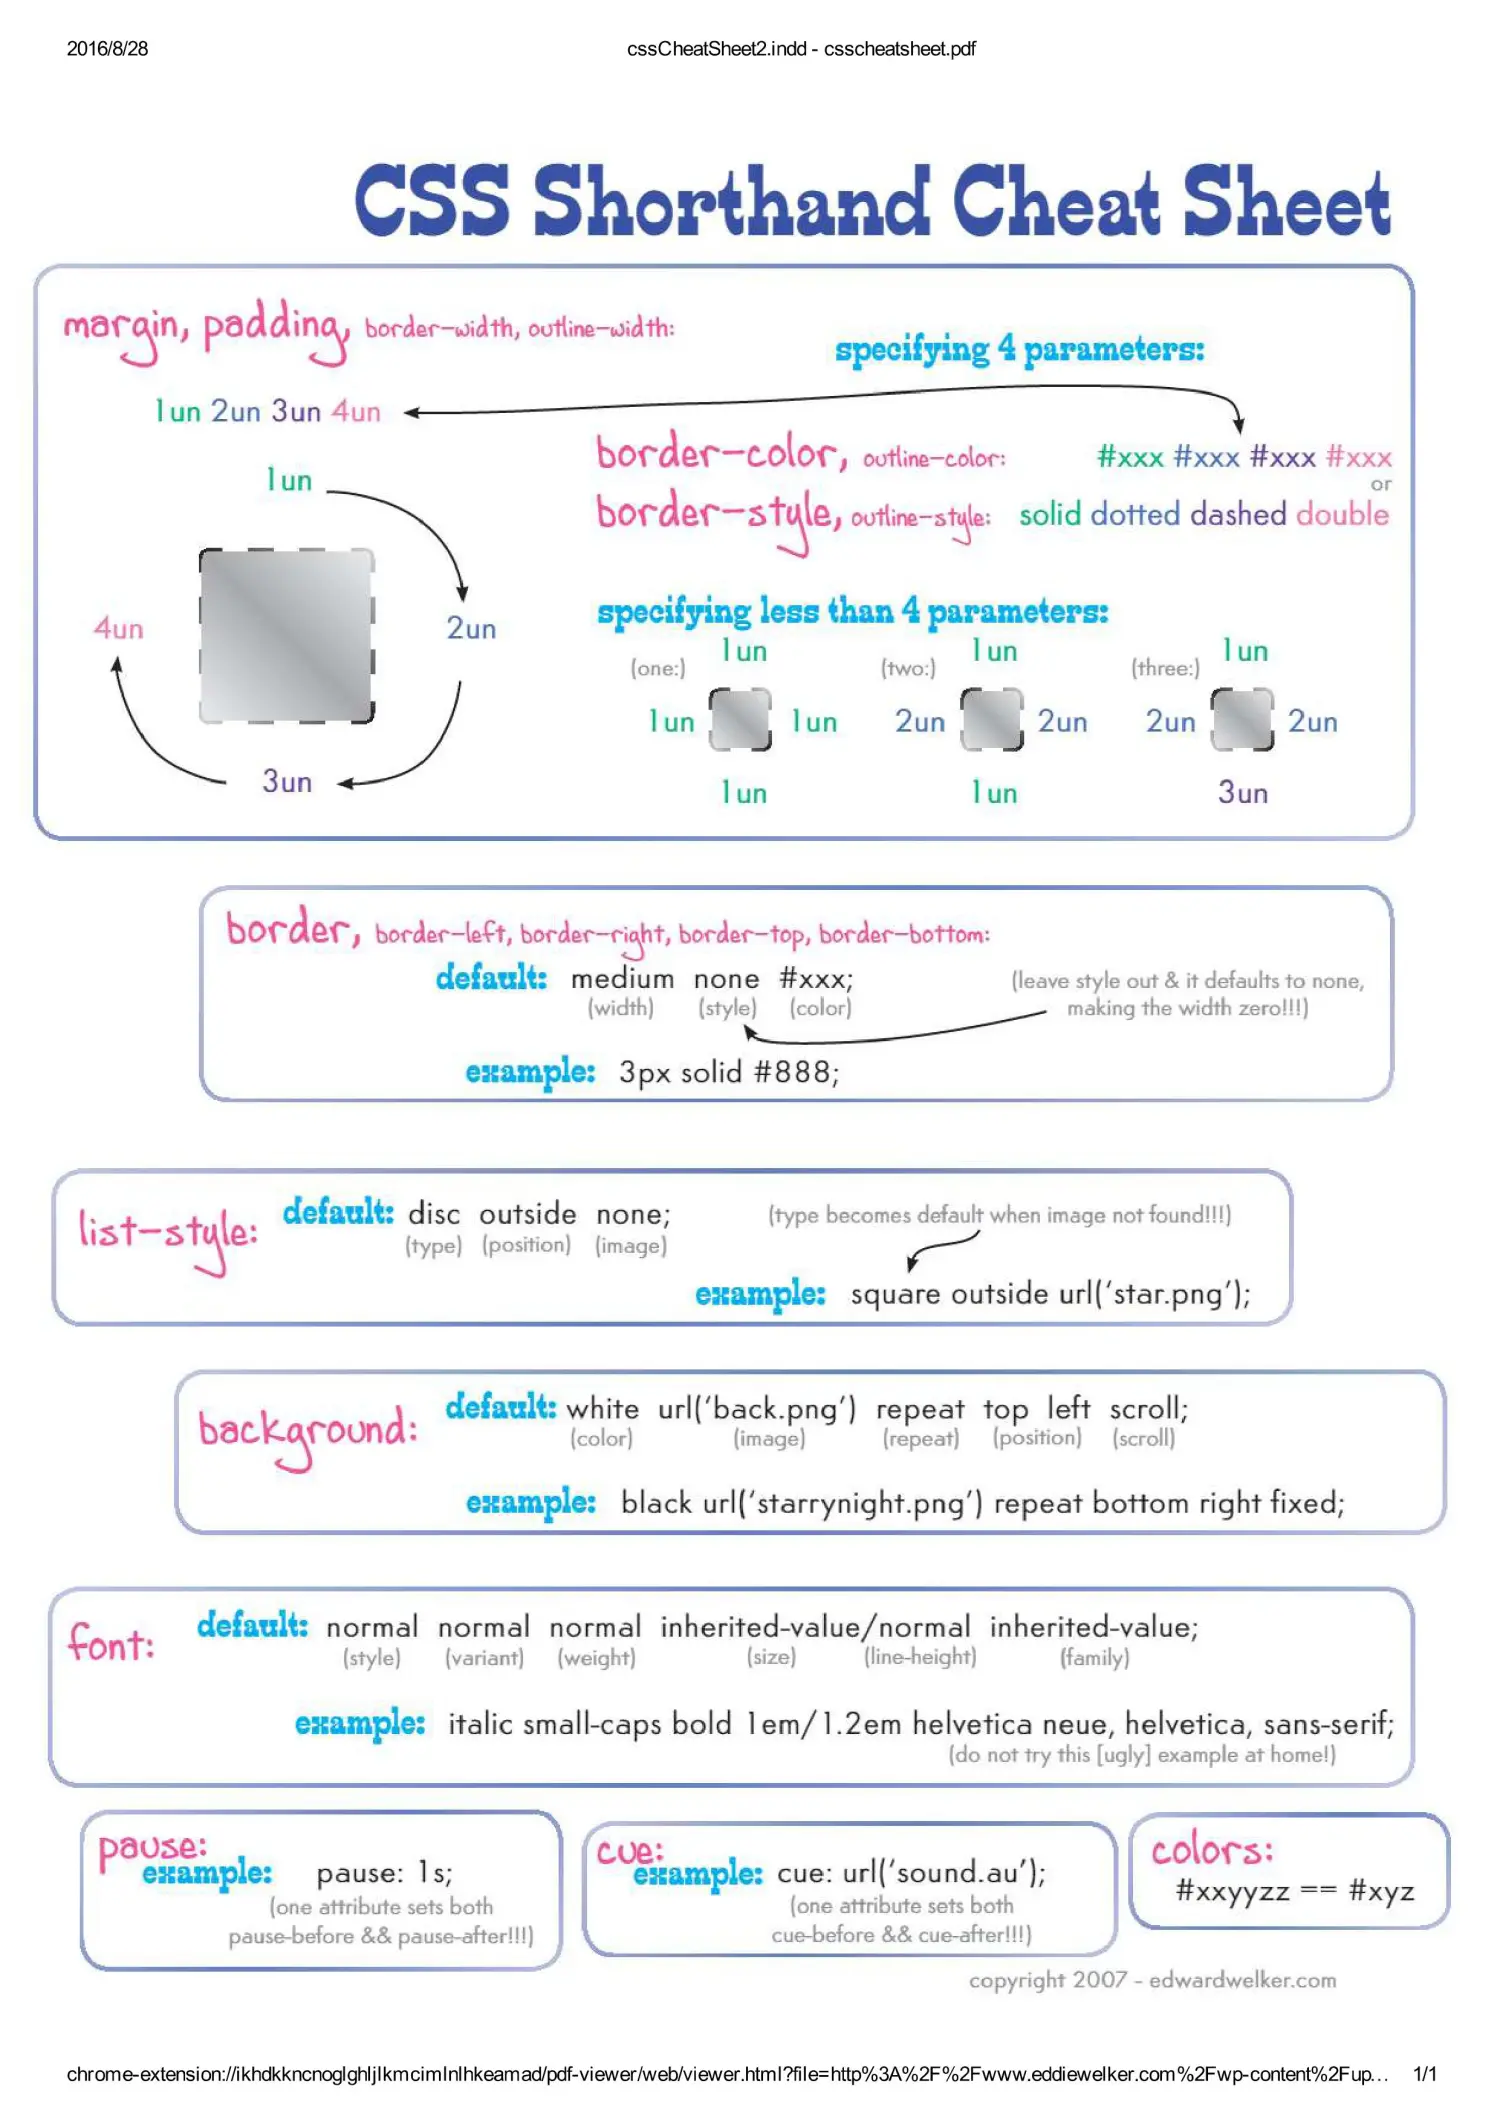 2016/8/28 cssCheatSheet2.indd - csscheatsheet.pdf
CSS Shorthand Cheat Sheet
margin, padding, border-width, outline-width:
specifying 4 parameters:
1un 2un 3un 4un
border-color, outline-color: #xxx #xxx #xxx #xxx
or
border-style, outline-style: solid dotted dashed double
1un
2un
3un
4un
specifying less than 4 parameters:
(one:) 1un
1un 1un
1un
(two:) 1un
2un 2un
1un
(three:) 1un
2un 2un
3un
border, border-left, border-right, border-top, border-bottom:
default: medium none #xxx;
(width) (style) (color)
(leave style out & it defaults to none,
making the width zero!!!)
example: 3px solid #888;
list-style: default: disc outside none;
(type) (position) (image)
(type becomes default when image not found!!!)
example: square outside url('star.png');
background: default: white url('back.png') repeat top left scroll;
(color) (image) (repeat) (position) (scroll)
example: black url('starrynight.png') repeat bottom right fixed;
font: default: normal normal normal inherited-value/normal inherited-value;
(style) (variant) (weight) (size) (line-height) (family)
example: italic small-caps bold 1em/1.2em helvetica neue, helvetica, sans-serif;
(do not try this [ugly] example at home!)
pause:
example: pause: 1s;
(one attribute sets both
pause-before && pause-after!!!)
cue:
example: cue: url('sound.au');
(one attribute sets both
cue-before && cue-after!!!)
colors:
#xxyyzz == #xyz
copyright 2007 - edwardwelker.com
chrome-extension://ikhdkkncnoglghljlkmcimlnlhkeamad/pdf-viewer/web/viewer.html?file=http%3A%2F%2Fwww.eddiewelker.com%2Fwp-content%2Fup… 1/1